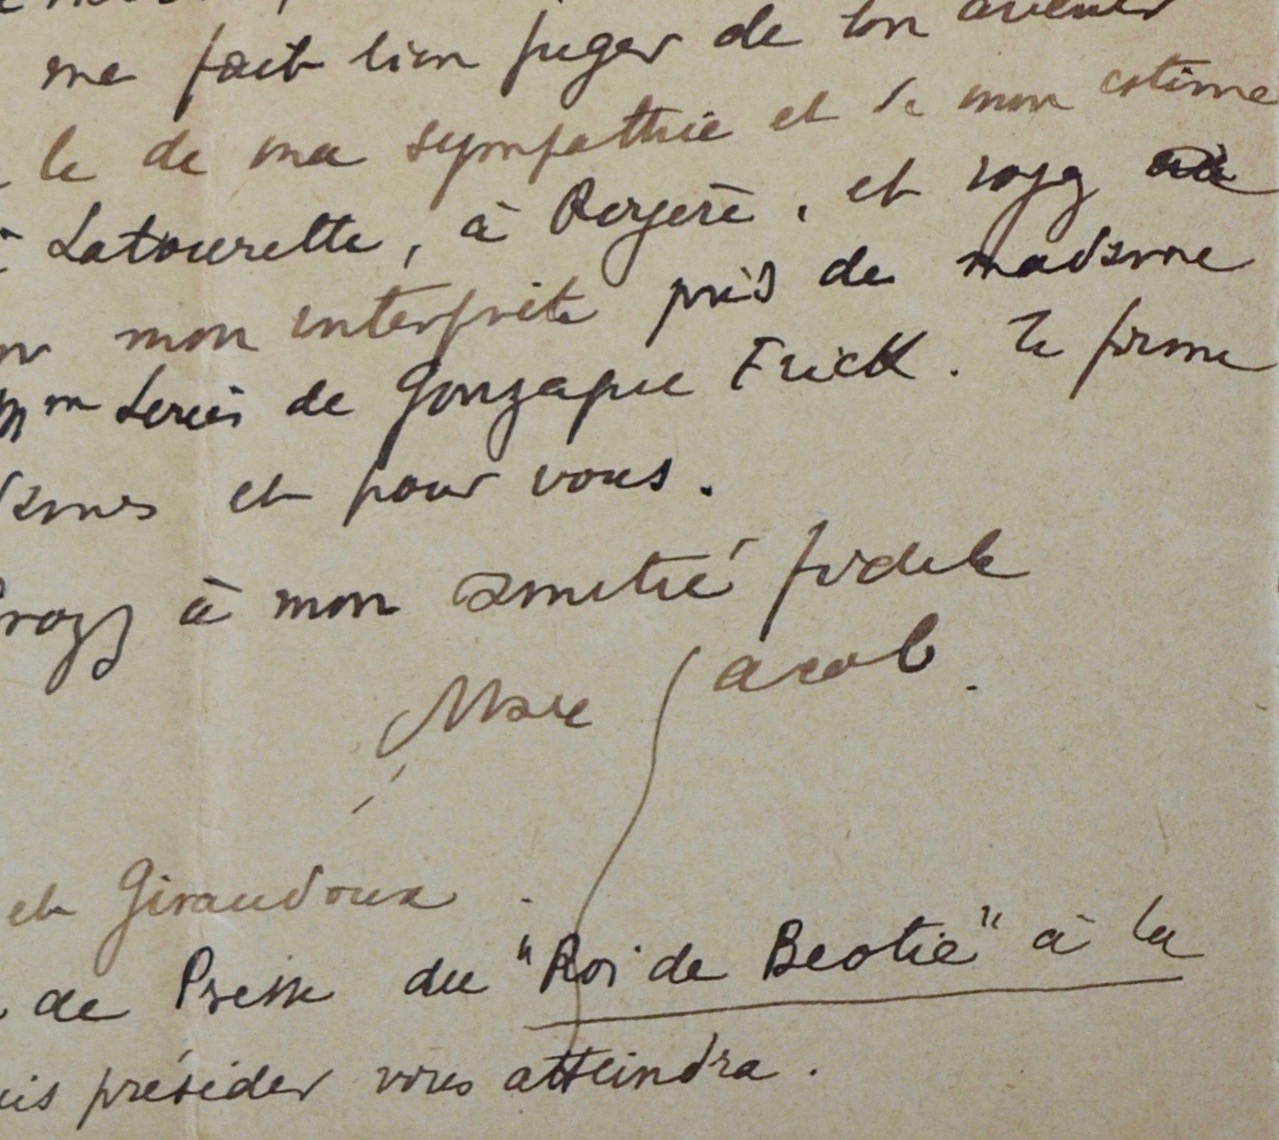 me fait bien juger de ton avenir
le de ma sympathie et de mon estime
à Latourette, à Royère, et soyez
mon interprète près de madame
Mme Louis de Gonzague Frick. Te firme
et pour vous.
Croyez à mon amitié fidèle
Max Jacob.
et Giraudoux.
de Presse du "Roi de Beotie" à la
présider vous atteindra.